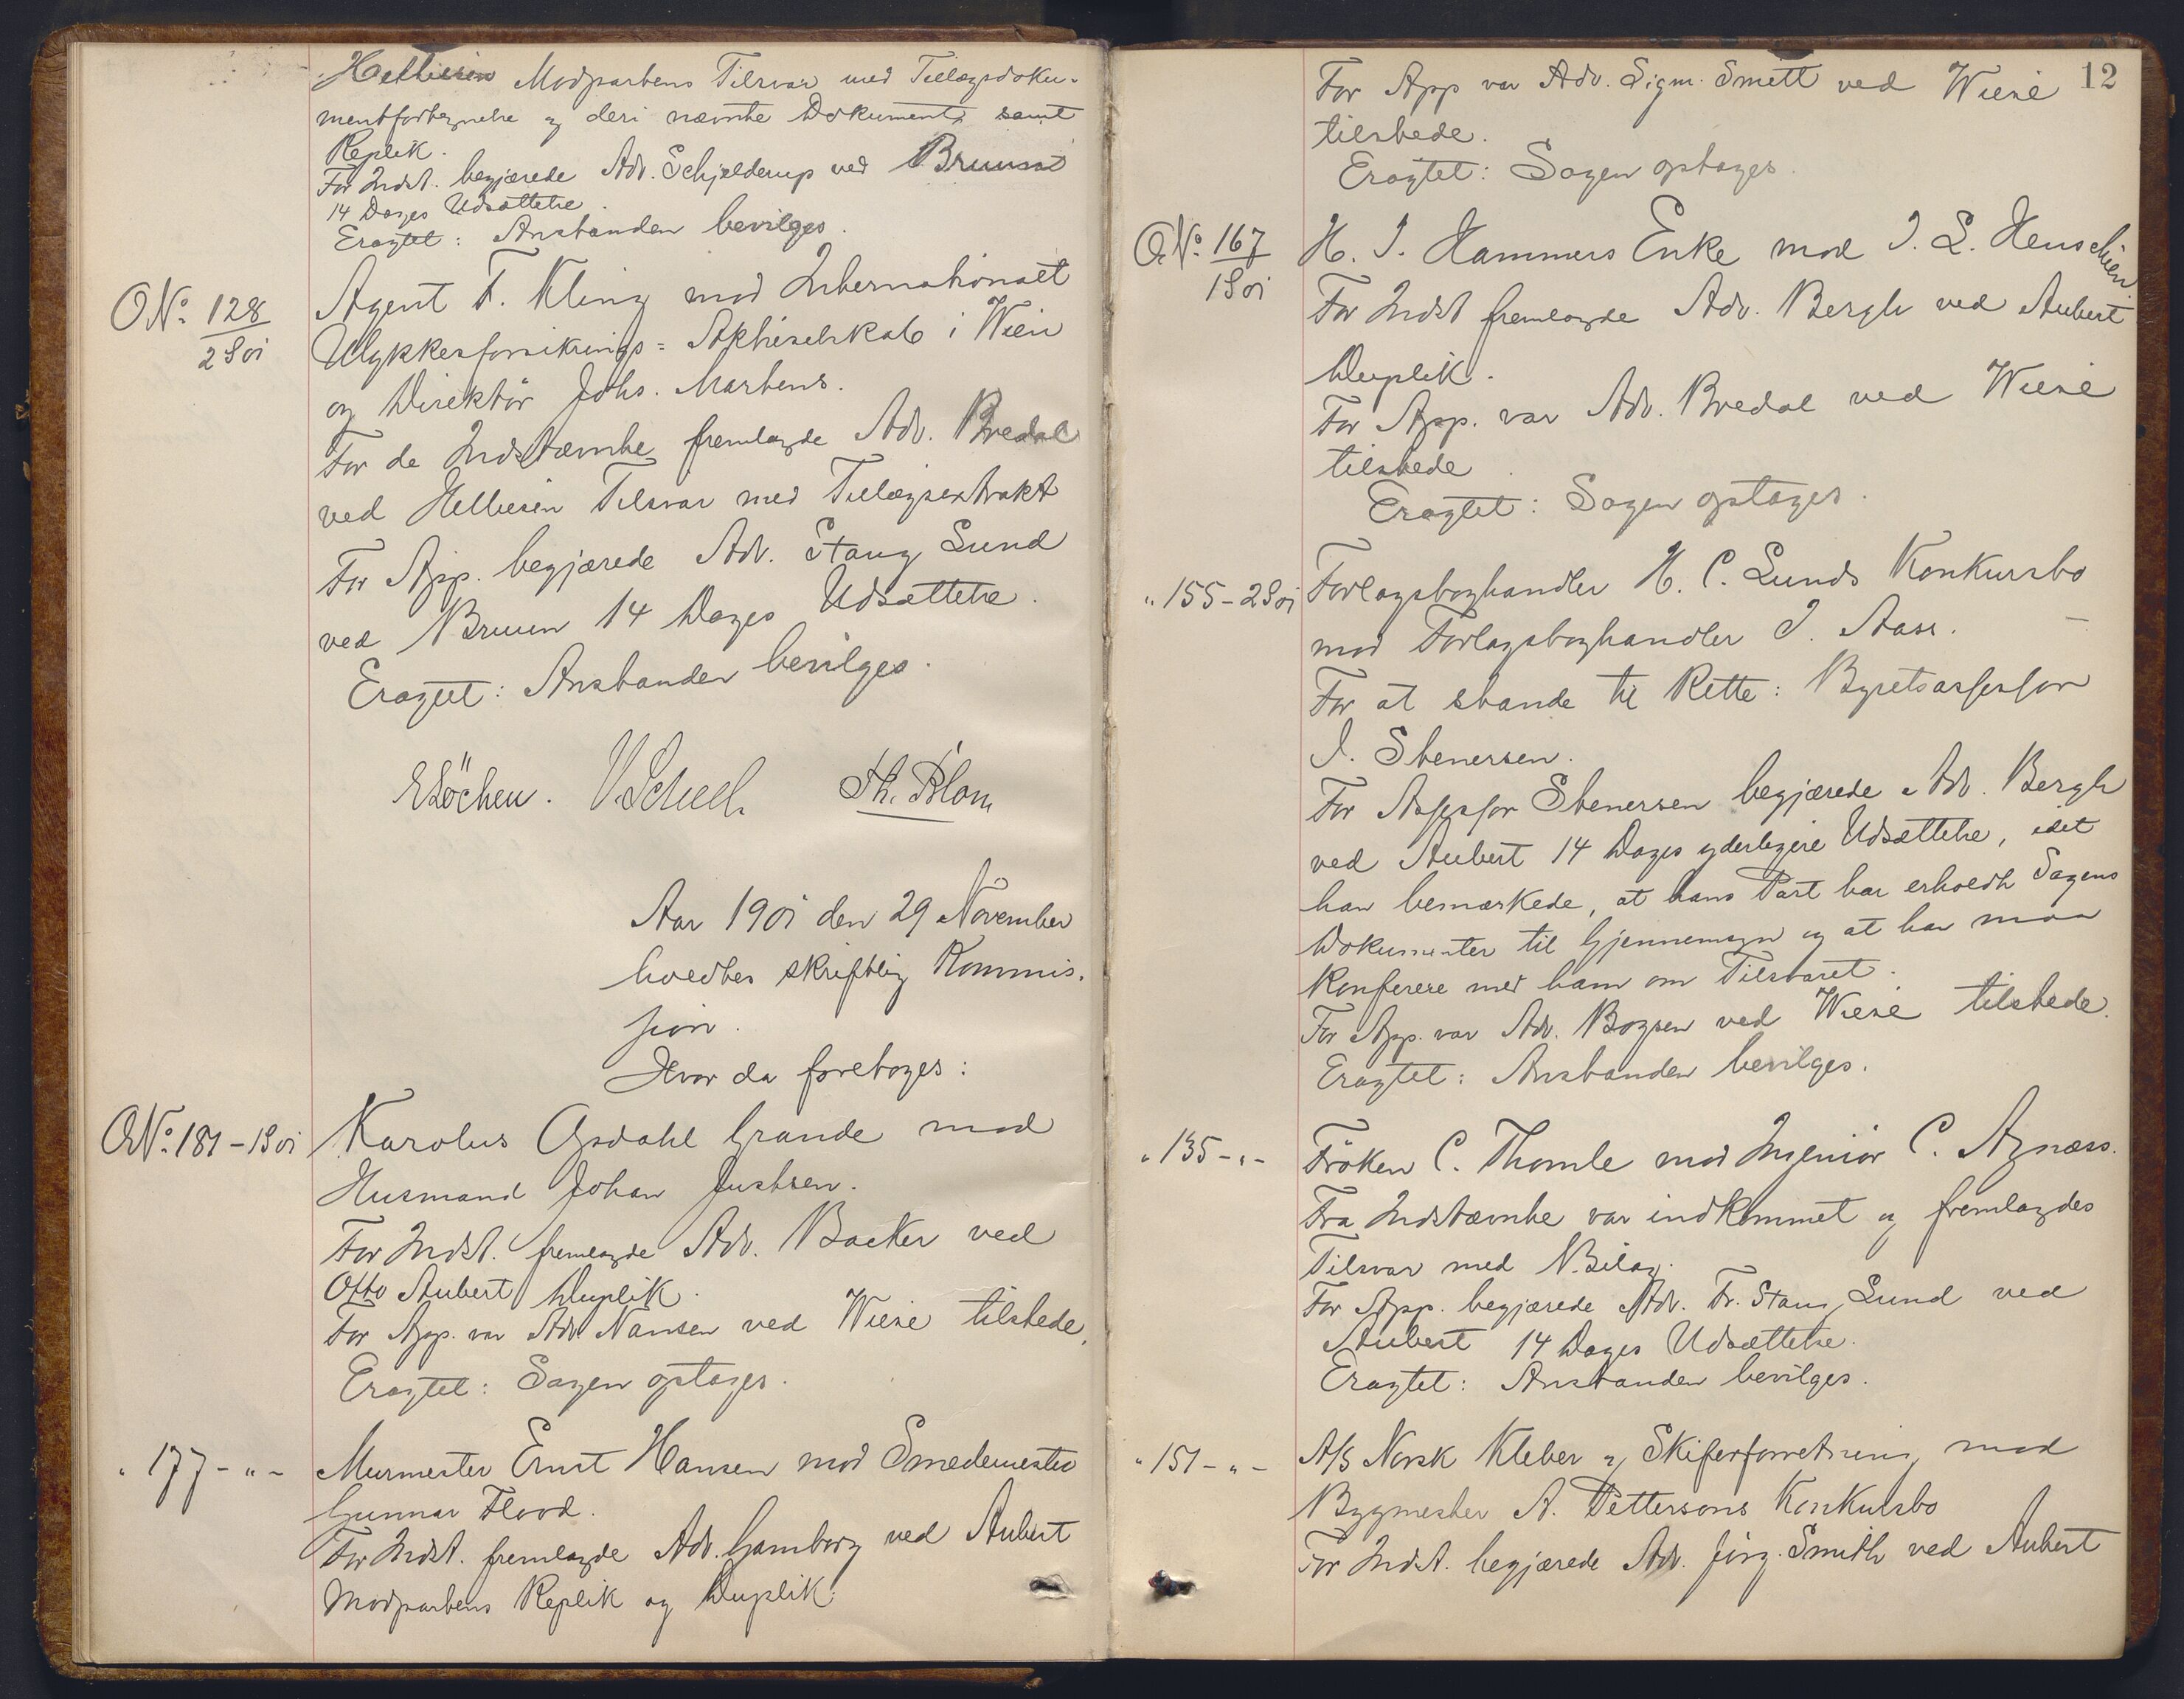 Helliesen Modpartens Tilsvar med Tillægsdoku-
mentfortegnelse og deri nævnte Dokumenter samt
Replik.
For Indst. begjærede Adv. Schjelderup ved Bruun
14 Dages Udsættelse.
Eragtet: Anstanden bevilges.
O.No. 128
2 S 01
Agent F. Kling mod Internationalt
Ulykkesforsikrings-Aktieselskab i Wien
og Direktör Johs. Martens.
For de Indstævnte fremlagde Adv. Bredal
ved Helliesen Tilsvar med Tillægsextrakt
For App. begjærede Adv. Stang Lund
ved Bruun 14 Dages Udsættelse.
Eragtet: Anstanden bevilges.
E Löchen. V. Scheel. Th. Blom
Aar 1901 den 29 November
holdtes skriftlig Kommis-
sion.
Hvor da foretoges:
O.No. 181 - 1 S 01
Karolus Opdahl Grande mod
Husmand Johan Justsen.
For Indst. fremlagde Adv. Backer ved
Otto Aubert Duplik.
For App. var Adv. Nansen ved Wiese tilstede.
Eragtet: Sagen optages.
" 177 - " -
Murmester Ernst Hansen mod Smedemester
Gunnar Flood.
For Indst. fremlagde Adv. Gamborg ved Aubert
Modpartens Replik og Duplik.
12
For App var Adv. Sigm. Smett ved Wiese
tilstede.
Eragtet: Sagen optages.
O.No. 167
1 S 01
H. J. Hammers Enke mod J. L. Henschien.
For Indst fremlagde Adv. Bergh ved Aubert
Duplik.
For App. var Adv. Bredal ved Wiese
tilstede.
Eragtet: Sagen optages.
" 155 - 2 S 01
Forlagsboghandler H. C. Lunds Konkursbo
mod Forlagsboghandler J. Aass. -
For at stande til Rette: Byretsassessor
J. Stenersen.
For Assessor Stenersen begjærede Adv. Bergh
ved Aubert 14 Dages yderligere Udsættelse, idet
han bemærkede, at hans Part har erholdt Sagens
Dokumenter til Gjennemsyn og at han maa
konferere med ham om Tilsvaret.
For App. var Adv. Boysen ved Wiese tilstede.
Eragtet: Anstanden bevilges.
" 135 - " -
Fröken C. Thomle mod Ingeniör C. Agnæss.
Fra Indstævnte var indkommet og fremlagdes
Tilsvar med Bilag.
For App. begjærede Adv. Fr. Stang Lund ved
Aubert 14 Dages Udsættelse.
Eragtet: Anstanden bevilges.
" 151 - " -
A/S Norsk Kleber og Skiferforretning mod
Bygmester A. Pettersons Konkursbo
For Indst. begjærede Adv. Jörg. Smith ved Aubert